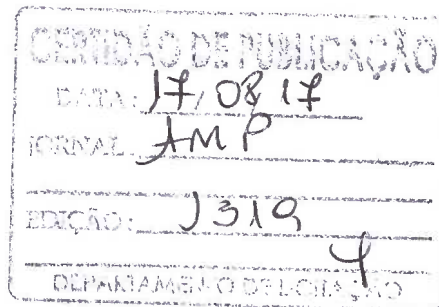 CERTIDÃO DE PUBLICAÇÃO
DATA: 17/08/17
JORNAL: AMP
EDIÇÃO: 1319
DEPARTAMENTO DE LICITAÇÃO